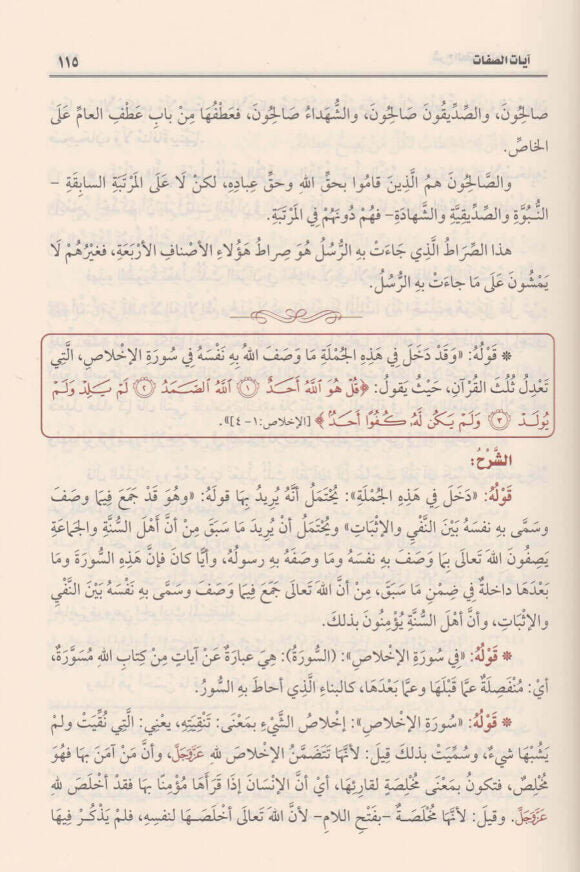 آيات الصفات ١١٥
صَالِحُونَ، والصِّدِّيقُونَ صَالِحُونَ، والشُّهَدَاءُ صَالِحُونَ، فَعَطْفُهَا مِنْ بابِ عَطْفِ العامِّ عَلَى
الخاصِّ.
والصَّالِحُونَ همُ الَّذِينَ قامُوا بحقِّ اللهِ وحقِّ عِبادِهِ، لكنْ لَا عَلَى المَرْتَبَةِ السابقَةِ -
النُّبُوَّةِ والصِّدِّيقِيَّةِ والشَّهادَةِ- فَهُمْ دُونَهُمْ فِي المَرْتَبَةِ.
هذا الصِّرَاطُ الَّذِي جَاءَتْ بِهِ الرُّسُلُ هُوَ صِراطُ هَؤُلَاءِ الأَصْنافِ الأَرْبَعَةِ، فغَيْرُهُمْ لَا
يَمْشُونَ عَلَى مَا جاءَتْ بِهِ الرُّسُلُ.
* قَوْلُهُ: «وَقَدْ دَخَلَ فِي هَذِهِ الجُمْلَةِ مَا وَصَفَ اللهُ بِهِ نَفْسَهُ فِي سُورَةِ الإِخْلَاصِ، الَّتِي
تَعْدِلُ ثُلُثَ القُرْآنِ، حَيْثُ يقولُ: ﴿قُلْ هُوَ اللَّهُ أَحَدٌ ۝١ اللَّهُ الصَّمَدُ ۝٢ لَمْ يَلِدْ وَلَمْ
يُولَدْ ۝٣ وَلَمْ يَكُن لَّهُ كُفُوًا أَحَدٌ﴾ [الإخلاص:١-٤]».
الشَّرْحُ:
قَوْلُهُ: «دَخَلَ فِي هَذِهِ الجُمْلَةِ»: يُحْتَمَلُ أنَّهُ يُرِيدُ بِهَا قولَهُ: «وهُوَ قَدْ جَمَعَ فِيمَا وصَفَ
وَسَمَّى بِهِ نفسَهُ بَيْنَ النَّفْيِ والإِثْبَاتِ» ويُحْتَمَلُ أنْ يُرِيدَ مَا سَبَقَ مِنْ أنَّ أَهْلَ السُّنَّةِ والجَماعَةِ
يَصِفُونَ اللهَ تَعالَى بِمَا وَصَفَ بِهِ نفسَهُ ومَا وصَفَهُ بِهِ رسولُهُ، وأيًّا كانَ فإنَّ هَذِهِ السُّورَةَ ومَا
بَعْدَهَا داخلَةٌ فِي ضِمْنِ مَا سَبَقَ، مِنْ أنَّ اللهَ تَعالَى جَمَعَ فِيمَا وَصَفَ وسَمَّى بِهِ نفسَهُ بَيْنَ النَّفْيِ
والإِثْباتِ، وأنَّ أهْلَ السُّنَّةِ يُؤْمِنُونَ بذلكَ.
* قَوْلُهُ: «فِي سُورَةِ الإِخْلَاصِ»: (السُّورَةُ): هِيَ عِبارَةٌ عَنْ آياتٍ مِنْ كِتابِ اللهِ مُسَوَّرَةٌ،
أيْ: مُنْفَصِلَةٌ عمَّا قَبْلَهَا وعمَّا بَعْدَهَا، كالبناءِ الَّذي أحاطَ بِهِ السُّورُ.
* قَوْلُهُ: «سُورَةِ الإِخْلَاصِ»: إِخْلاصُ الشَّيْءِ بمَعْنَى: تَنْقِيَتِهِ، يعْنِي: الَّتِي نُقِّيَتْ ولمْ
يَشُبْهَا شيءٌ، وسُمِّيَتْ بذلكَ قِيلَ: لأنَّهَا تَتَضَمَّنُ الإِخْلاصَ للهِ عَزَّوَجَلَّ، وأنَّ مَنْ آمَنَ بِهَا فَهُوَ
مُخْلِصٌ، فتكُونُ بمَعْنَى مُخْلِصَةٍ لقارِئِهَا، أيْ أنَّ الإنسانَ إذَا قَرَأَهَا مُؤْمِنًا بِهَا فقدْ أخْلَصَ للهِ
عَزَّوَجَلَّ. وقيلَ: لأنَّهَا مُخْلَصَةٌ -بفَتْحِ اللامِ- لأنَّ اللهَ تَعالَى أخلَصَهَا لنفسِهِ، فلمْ يَذْكُرْ فِيهَا